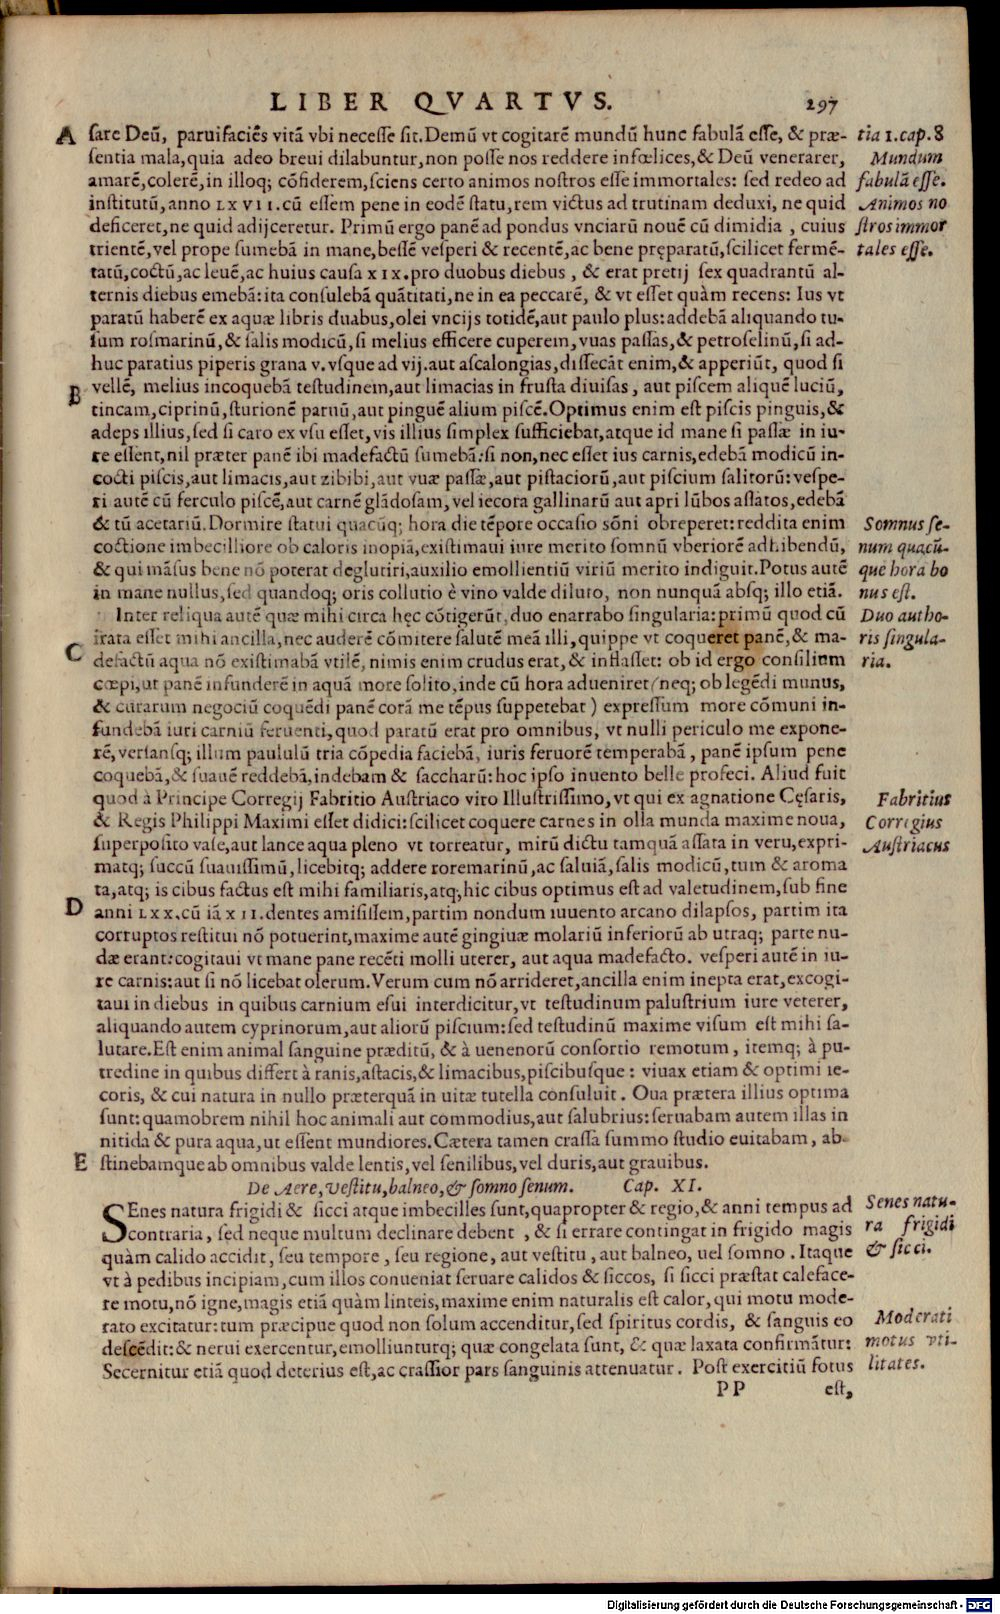 LIBER QVARTVS. 297
A sare Deū, paruifaciēs vitā vbi necesse sit. Demū vt cogitarē mundū hunc fabulā esse, & præ- tia 1. cap. 8
sentia mala, quia adeo breui dilabuntur, non posse nos reddere infœlices, & Deū venerarer, Mundum
amarē, colerē, in illoq; cōfiderem, sciens certo animos nostros esse immortales: sed redeo ad fabulā esse.
institutū, anno LXVII. cū essem pene in eodē statu, rem victus ad trutinam deduxi, ne quid Animos no
deficeret, ne quid adijceretur. Primū ergo panē ad pondus vnciarū nouē cū dimidia, cuius stros immor
trientē, vel prope sumebā in mane, bessē vesperi & recentē, ac bene pręparatū, scilicet fermē- tales esse.
tatū, coctū, ac leuē, ac huius causa XIX. pro duobus diebus, & erat pretij sex quadrantū al-
ternis diebus emebā: ita consulebā quātitati, ne in ea peccarē, & vt esset quàm recens: Ius vt
paratū haberē ex aquæ libris duabus, olei vncijs totidē, aut paulo plus: addebā aliquando tu-
sum rosmarinū, & salis modicū, si melius efficere cuperem, vuas passas, & petroselinū, si ad-
huc paratius piperis grana v. vsque ad vij. aut ascalongias, dissecāt enim, & apperiūt, quod si
B vellē, melius incoquebā testudinem, aut limacias in frusta diuisas, aut piscem aliquē luciū,
tincam, ciprinū, sturionē paruū, aut pinguē alium piscē. Optimus enim est piscis pinguis, &
adeps illius, sed si caro ex vsu esset, vis illius simplex sufficiebat, atque id mane si passæ in iu-
re essent, nil præter panē ibi madefactū sumebā: si non, nec esset ius carnis, edebā modicū in-
cocti piscis, aut limacis, aut zibibi, aut vuæ passæ, aut pistaciorū, aut piscium salitorū: vespe-
ri autē cū ferculo piscē, aut carnē glādosam, vel iecora gallinarū aut apri lūbos assatos, edebā
& tū acetariū. Dormire statui quacūq; hora die tēpore occasio sōni obreperet: reddita enim Somnus se-
coctione imbecilliore ob caloris inopiā, existimaui iure merito somnū vberiorē adhibendū, num quacū-
& qui māsus bene nō poterat deglutiri, auxilio emollientiū viriū merito indiguit. Potus autē que hora bo
in mane nullus, sed quandoq; oris collutio è vino valde diluto, non nunquā absq; illo etiā. nus est.
Inter reliqua autē quæ mihi circa hęc cōtigerūt, duo enarrabo singularia: primū quod cū Duo autho-
irata esset mihi ancilla, nec auderē cōmitere salutē meā illi, quippe vt coqueret panē, & ma- ris singula-
C defactū aqua nō existimabā vtilē, nimis enim crudus erat, & inflasset: ob id ergo consilium ria.
cœpi, ut panē infunderē in aquā more solito, inde cū hora adueniret (neq; ob legēdi munus,
& curarum negociū coquēdi panē corā me tēpus suppetebat) expressum more cōmuni in-
fundebā iuri carniū feruenti, quod paratū erat pro omnibus, vt nulli periculo me expone-
rē, versansq; illum paululū tria cōpedia faciebā, iuris feruorē temperabā, panē ipsum pene
coquebā, & suauē reddebā, indebam & saccharū: hoc ipso inuento belle profeci. Aliud fuit
quod à Principe Corregij Fabritio Austriaco viro Illustrissimo, vt qui ex agnatione Cęsaris, Fabritius
& Regis Philippi Maximi esset didici: scilicet coquere carnes in olla munda maxime noua, Corregius
superposito vase, aut lance aqua pleno vt torreatur, mirū dictu tamquā assata in veru, expri- Austriacus
matq; succū suauissimū, licebitq; addere roremarinū, ac saluiā, salis modicū, tum & aroma
ta, atq; is cibus factus est mihi familiaris, atq; hic cibus optimus est ad valetudinem, sub fine
D anni LXX. cū iā XII. dentes amisissem, partim nondum inuento arcano dilapsos, partim ita
corruptos restitui nō potuerint, maxime autē gingiuæ molariū inferiorū ab utraq; parte nu-
dæ erant: cogitaui vt mane pane recēti molli uterer, aut aqua madefacto. vesperi autē in iu-
re carnis: aut si nō licebat olerum. Verum cum nō arrideret, ancilla enim inepta erat, excogi-
taui in diebus in quibus carnium esui interdicitur, vt testudinum palustrium iure veterer,
aliquando autem cyprinorum, aut aliorū piscium: sed testudinū maxime visum est mihi sa-
lutare. Est enim animal sanguine præditū, & à uenenorū consortio remotum, itemq; à pu-
tredine in quibus differt à ranis, astacis, & limacibus, piscibusque: viuax etiam & optimi ie-
coris, & cui natura in nullo præterquā in uitæ tutella consuluit. Oua prætera illius optima
sunt: quamobrem nihil hoc animali aut commodius, aut salubrius: seruabam autem illas in
nitida & pura aqua, ut essent mundiores. Cætera tamen crassa summo studio euitabam, ab-
E stinebamque ab omnibus valde lentis, vel senilibus, vel duris, aut grauibus.
De Aere, Vestitu, balneo, & somno senum. Cap. XI.
SEnes natura frigidi & sicci atque imbecilles sunt, quapropter & regio, & anni tempus ad Senes natu-
contraria, sed neque multum declinare debent, & si errare contingat in frigido magis ra frigidi
quàm calido accidit, seu tempore, seu regione, aut vestitu, aut balneo, uel somno. Itaque & sicci.
vt à pedibus incipiam, cum illos conueniat seruare calidos & siccos, si sicci præstat caleface-
re motu, nō igne, magis etiā quàm linteis, maxime enim naturalis est calor, qui motu mode- Moderati
rato excitatur: tum præcipue quod non solum accenditur, sed spiritus cordis, & sanguis eo motus vti-
descēdit: & nerui exercentur, emolliunturq; quæ congelata sunt, & quæ laxata confirmātur: litates.
Secernitur etiā quod deterius est, ac crassior pars sanguinis attenuatur. Post exercitiū fotus
PP est,
Digitalisierung gefördert durch die Deutsche Forschungsgemeinschaft - DFG